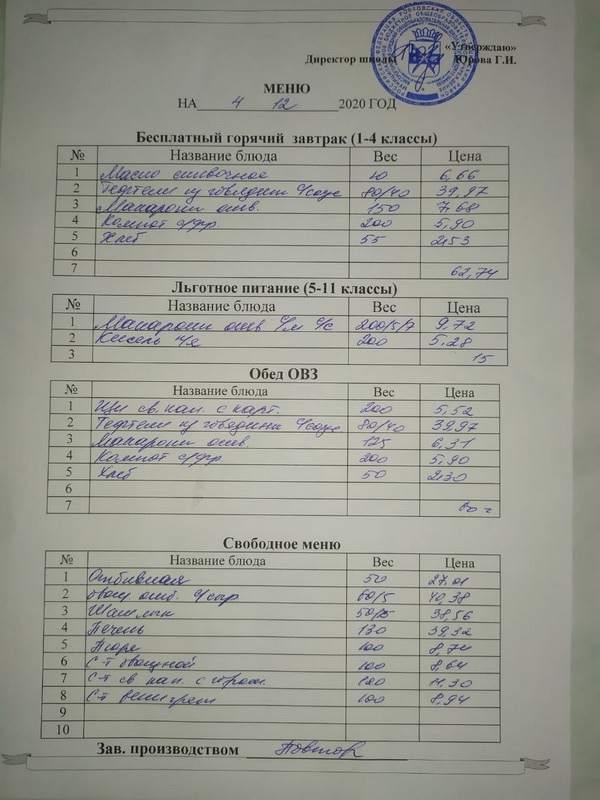 «Утверждаю»
Директор школы Юрова Г.И.
МЕНЮ
НА 4 12 2020 ГОД
Бесплатный горячий завтрак (1-4 классы)
№ Название блюда Вес Цена
1 Масло сливочное 10 6,66
2 Тефтели из говядины с/соус 80/40 39,97
3 Макароны отв. 150 7,68
4 Компот с/фр 200 5,90
5 Хлеб 55 2,53
6
7 62,74
Льготное питание (5-11 классы)
№ Название блюда Вес Цена
1 Макароны отв с/м с/с 200/5/7 9,72
2 Кисель 200 5,28
3 15
Обед ОВЗ
№ Название блюда Вес Цена
1 Щи св. кап. с карт. 200 5,52
2 Тефтели из говядины с/соус 80/40 39,97
3 Макароны отв. 125 6,31
4 Компот с/фр 200 5,90
5 Хлеб 50 2,30
6
7 60
Свободное меню
№ Название блюда Вес Цена
1 Отбивная 50 27,01
2 овощ. отб. с/сыр 60/5 40,38
3 Шашлык 38,56
4 Печень 130 39,32
5 Пюре 100 8,74
6 С-т овощной 100 8,64
7 С-т св. кап. с горош.
8 С-т винегрет 100 8,94
9
10
Зав. производством